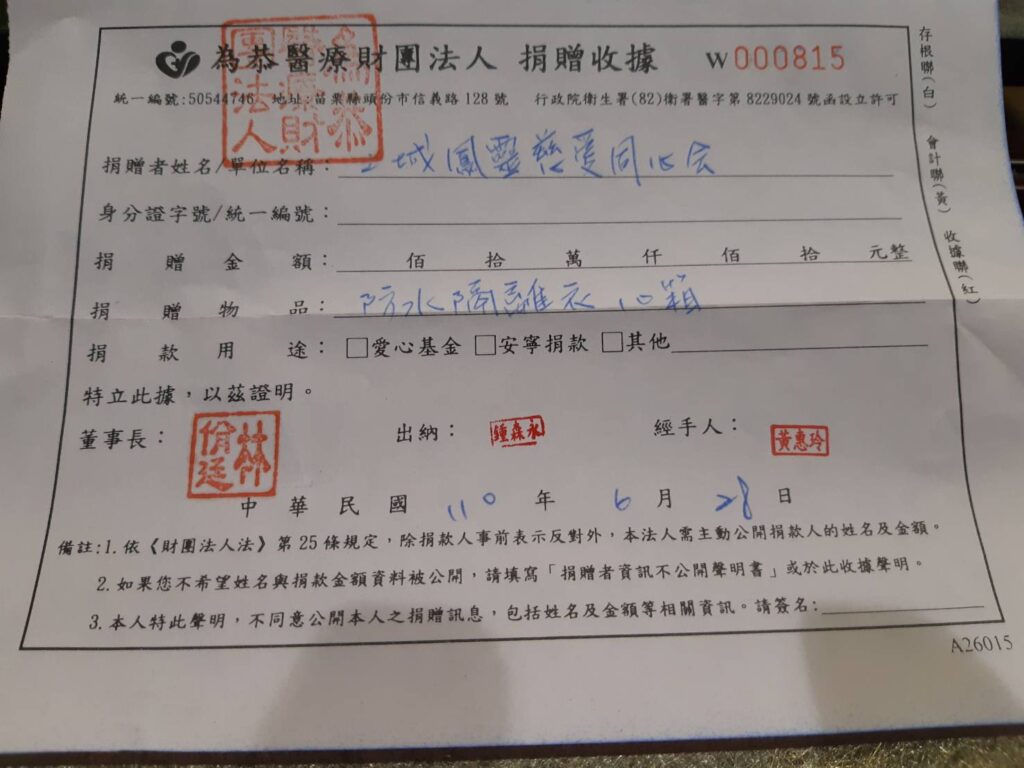 為恭醫療財團法人 捐贈收據 W000815
統一編號:50544746 地址:苗栗縣頭份市信義路128號 行政院衛生署(82)衛署醫字第8229024號函設立許可
為恭醫療財團法人
捐贈者姓名/單位名稱: 城鳳靈慈愛同心会
身分證字號/統一編號:
捐贈金額: 佰 拾 萬 仟 佰 拾 元整
捐贈物品: 防水隔離衣 心箱
捐款用途: □愛心基金 □安寧捐款 □其他
特立此據,以茲證明。
董事長: 出納: 鍾森永 經手人: 黃惠玲
中華民國 110 年 6 月 28 日
備註:1.依《財團法人法》第25條規定,除捐款人事前表示反對外,本法人需主動公開捐款人的姓名及金額。
2.如果您不希望姓名與捐款金額資料被公開,請填寫「捐贈者資訊不公開聲明書」或於此收據聲明。
3.本人特此聲明,不同意公開本人之捐贈訊息,包括姓名及金額等相關資訊。請簽名:
A26015
存根聯(白) 會計聯(黃) 收據聯(紅)